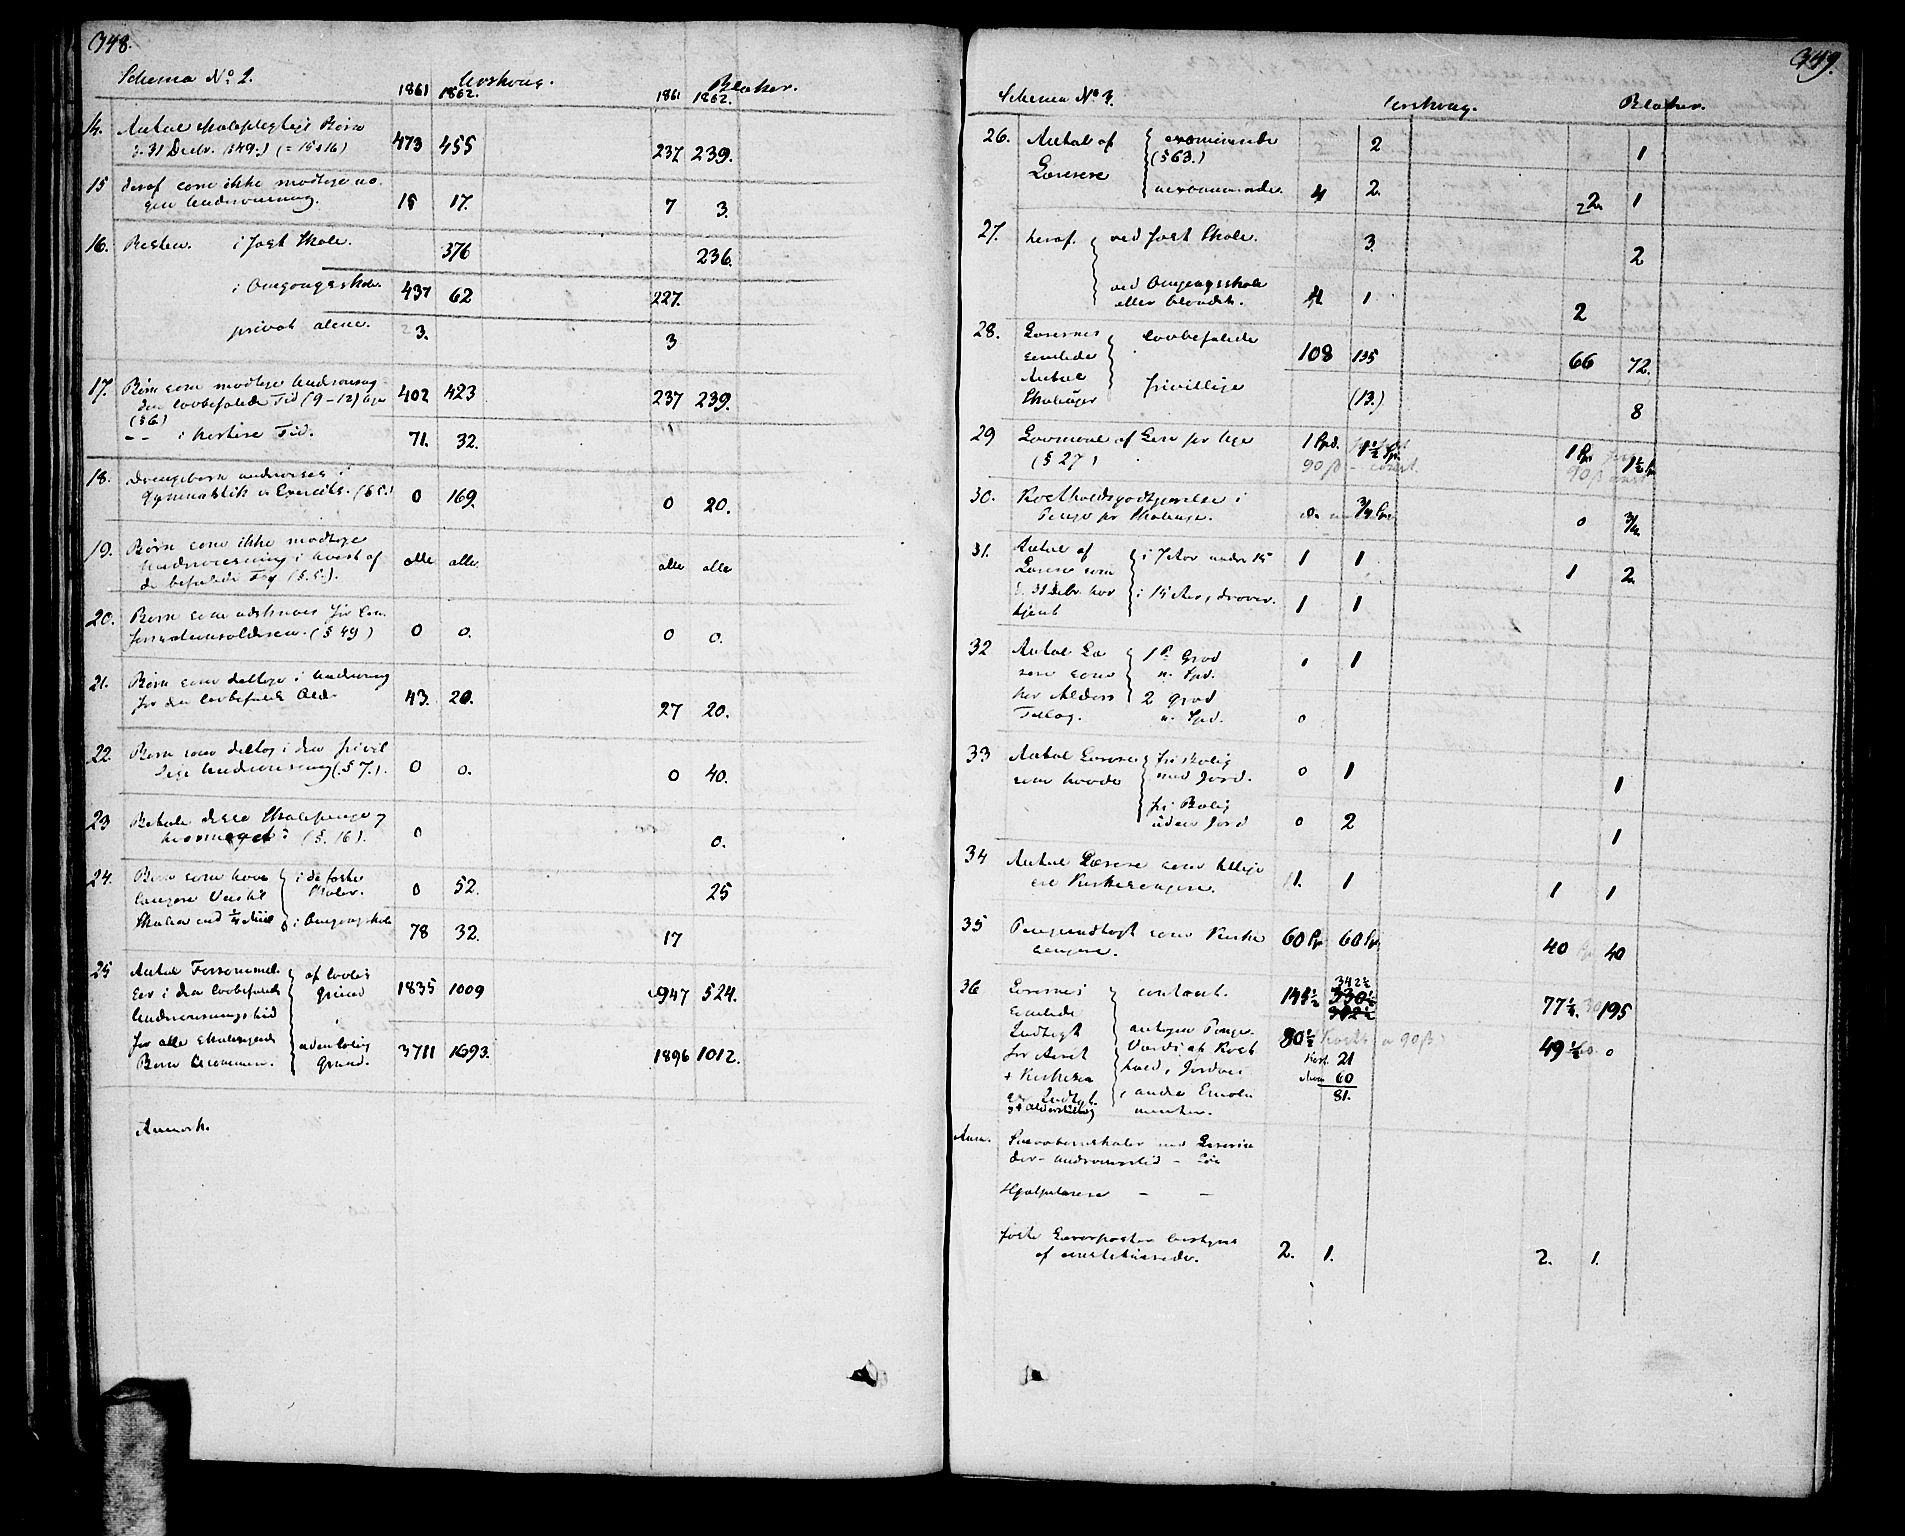 348.
Schema No 2. Urskoug. Blaker.
1861 1862. 1861 1862.
14. Antal skolepligtige Børn
d. 31 Decbr. (§49.) (= 15+16) 473 455 237 239.
15 deraf som ikke modtoge no-
gen Underviisning. 15 17. 7 3.
16. Resten i fast Skole. 376 236.
i Omgangsskole. 437 62 227.
privat alene. 3. 3
17. Børn som modtoge Underviisng
den lovbefalede Tid (9-12) Uger 402 423 237 239.
(§6)
-- i kortere Tid. 71. 32.
18. Drengebørn undervises i
Gymnastik o Exercits. (§5.) 0 169. 0 20.
19. Børn som ikke modtoge
Underviisning i hvert af
de befalede Fag (§5.). alle alle alle alle
20. Børn som udskreves før Con-
firmationsalderen. (§ 49) 0 0. 0 0.
21. Børn som deltoge i Underviisng
før den lovbefalede Alder 43. 20. 27 20.
22. Børn som deltog i den frivil
lige Underviisning (§7.). 0 0. 0 40.
23 Betale disse Skolepenge og
hvormeget? (§. 16). 0 0.
24. Børn som have i de faste
længere Vei til Skoler. 0 52. 25
Skolen end ¼ Miil i Omgangsskole 78 32. 17
25 Antal Forsømmel- af lovlig
ser i den lovbefalede Grund 1835 1009 947 524.
Underviisningstid
for alle Skolesøgende uden lovlig 3711 1693. 1896 1012.
Børn tilsammen. Grund.
Anmærk.
349.
Schema No 3. Urskoug. Blaker.
26. Antal af examinerede 2 1
Lærere (§63.)
uexaminerede. 4 2. 2 1
27. heraf. ved fast Skole. 3. 2
ved Omgangsskole
eller blandet. 4 1 2
28. Lærernes lovbefalede
samlede 108 135 66 72.
Antal frivillige
Skoleuger (13.) 8
29 Lovmæssl af Løn pr Uge 1 Spd. 1½ Sp. 1 Sp 1½ Sp
(§ 27) 90 ß 90 ß
30. Kostholdsgodtgjørelse i
Penge pr Skoleuge. 0 ¾ Sp. 0 ¾
31. Antal af i 7 Aar under 15 1 1 1 2
Lærere som
d. 31 Debr. har i 15 Aar, derover. 1 1
tjent
32 Antal Læ 1e Grad 1
rere som n. Spd.
har Alders 2 Grad
Tillæg. n. Spd. 0
33 Antal Lærere fri Bolig
som havde med Jord. 0 1 1
fri Bolig
uden Jord 0 2 1
34 Antal Lærere som tillige
ere Kirkesangere. 1. 1 1 1
35 Pengeindtægt som Kirke
sangere. 60 Sp 60 Sp. 40 40
36 Lærernes contant. 342½
samlede 145½ 330½ 77½ 195
342½
Indtægt anden Penge- 80½ 49½ 0
for Aaret Værdi af Kost Kost. 21
+ Kirkesan hold, Jordvei 60
ger Indtægt , andre Emolu 81.
og Alderstillæg menter.
Anm. Smaabørnskoler med Lærerin
der - Underviisningstid - Løn
Hjælpelærere - -
faste Lærerposter bestyres
af ansatte 2. 1. 2. 1.